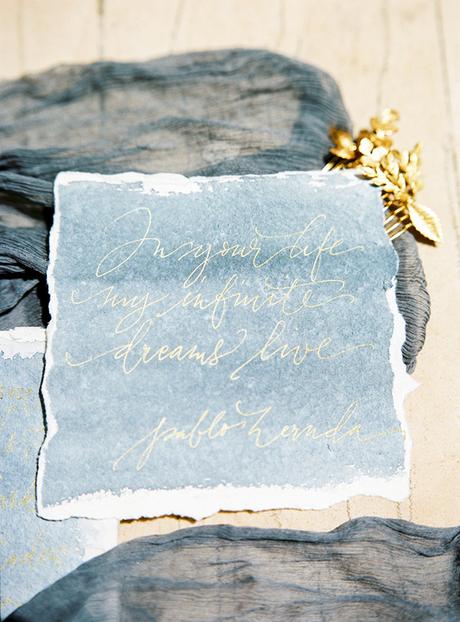 In your life
my infinite
dreams live
pablo neruda